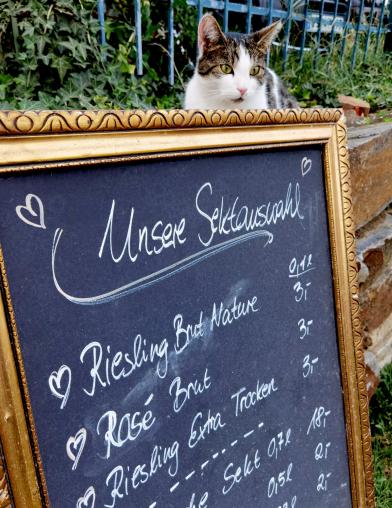 Unsere Sektauswahl
0,1l
Riesling Brut Nature 3,-
Rosé Brut 3,-
Riesling Extra Trocken 3,-
Sekt 0,7l 18,-
0,5l 2,-
2,-